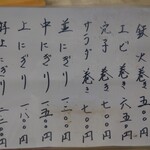 鉄火巻き 五〇〇円
エビ巻き 六五〇円
穴子巻き 七〇〇円
サラダ巻き 七〇〇円
並にぎり 一二〇〇円
中にぎり 一五〇〇円
上にぎり 一八〇〇円
特上にぎり 二二〇〇円